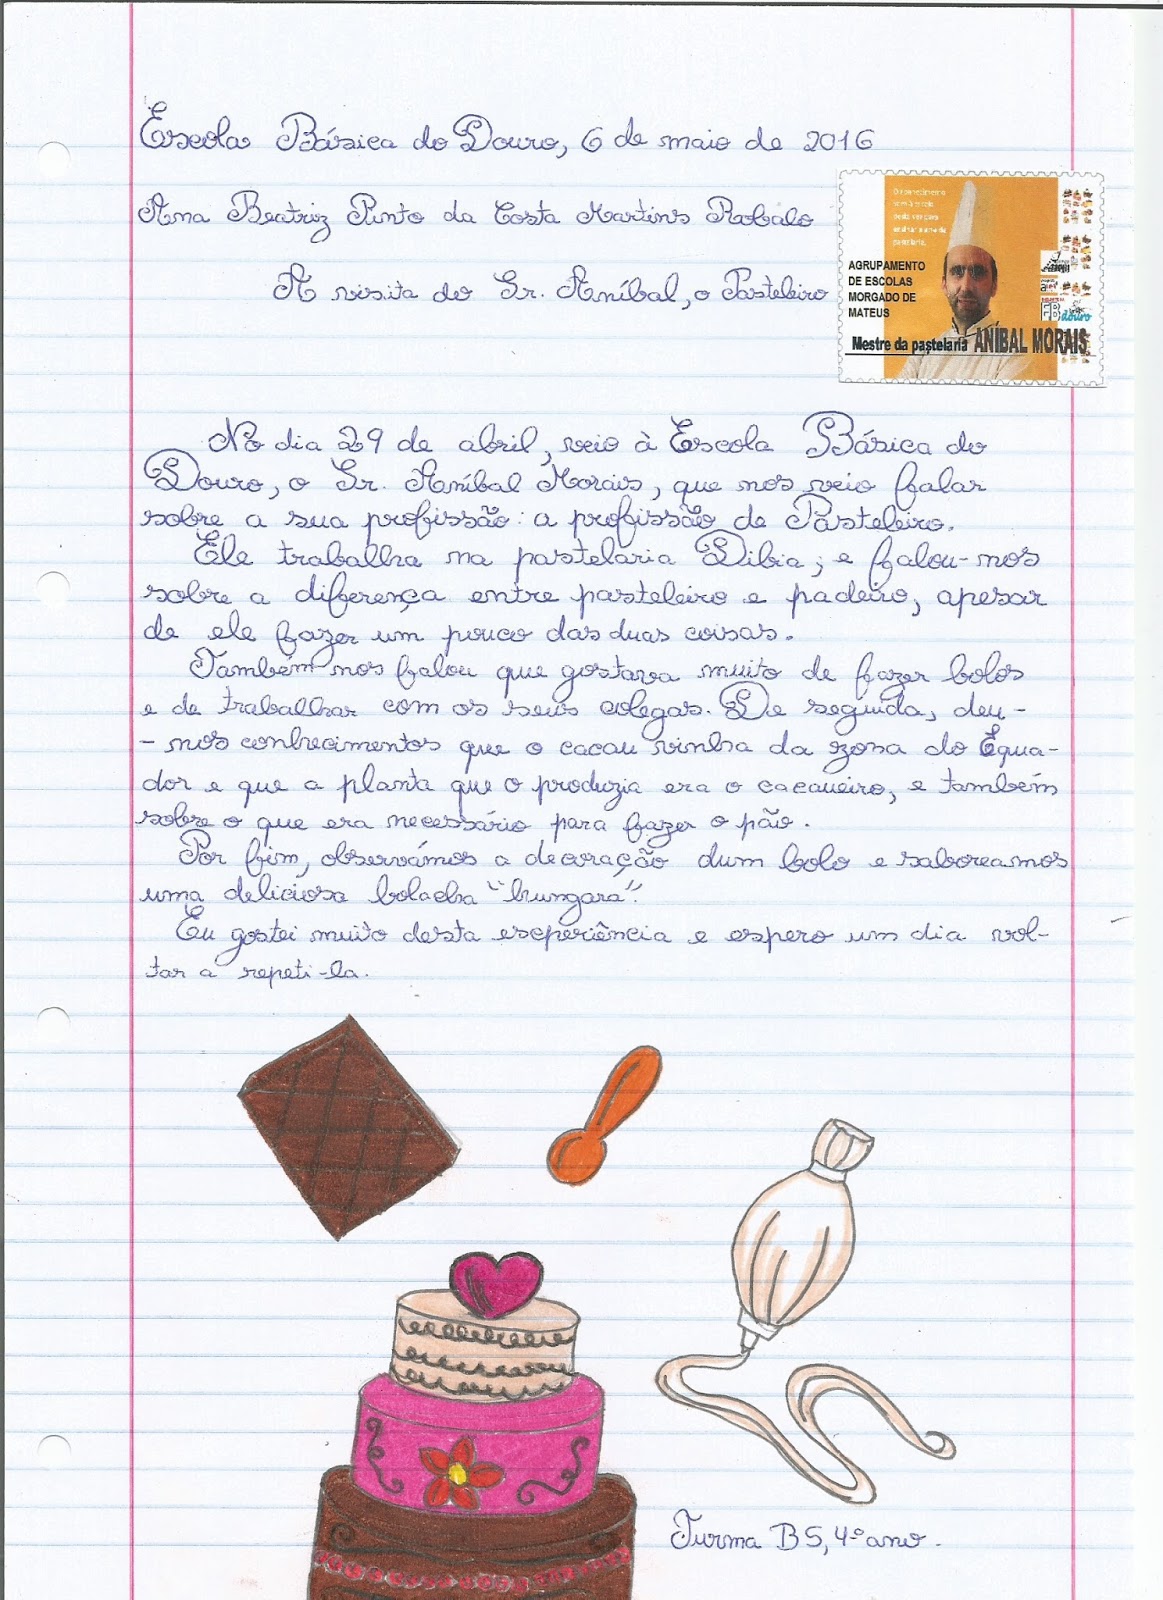 Escola Básica do Douro, 6 de maio de 2016
Ana Beatriz Pinto da Costa Martins Robalo
A visita do Sr. Aníbal, o Pasteleiro
AGRUPAMENTO
DE ESCOLAS
MORGADO DE
MATEUS
Mestre da pastelaria ANÍBAL MORAIS
EB
douro
No dia 29 de abril, veio à Escola Básica do
Douro, o Sr. Aníbal Morais, que nos veio falar
sobre a sua profissão: a profissão de Pasteleiro.
Ele trabalha na pastelaria Dibia; e falou-nos
sobre a diferença entre pasteleiro e padeiro, apesar
de ele fazer um pouco das duas coisas.
Também nos falou que gostava muito de fazer bolos
e de trabalhar com os seus colegas. De seguida, deu-
-nos conhecimentos que o cacau vinha da zosa do Equa-
dor e que a planta que o produzia era o cacaueiro, e também
sobre o que era necessário para fazer o pão.
Por fim, observámos a decoração dum bolo e saboreamos
uma deliciosa bolacha "hungara".
Eu gostei muito desta escperiência e espero um dia vol-
tar a repeti-la.
Turma B5, 4º ano.